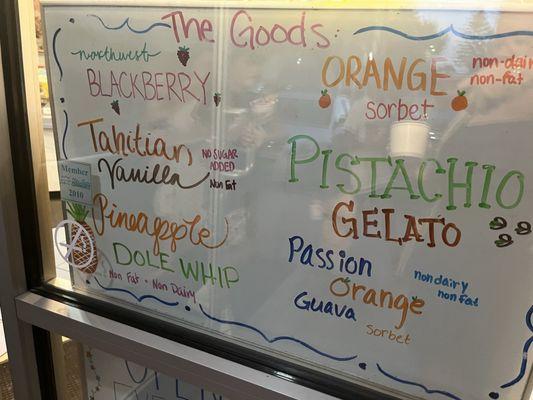 The Goods
northwest
BLACKBERRY
Tahitian
Vanilla
NO SUGAR
ADDED
Non Fat
Member
2010
Pineapple
DOLE WHIP
Non Fat - Non Dairy
ORANGE
sorbet
non-dairy
non-fat
PISTACHIO
GELATO
Passion
Orange
Guava
sorbet
nondairy
non fat
OPEN